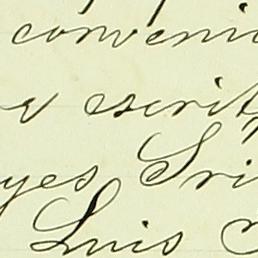 conveni
a escrit
yes Sri
Luis